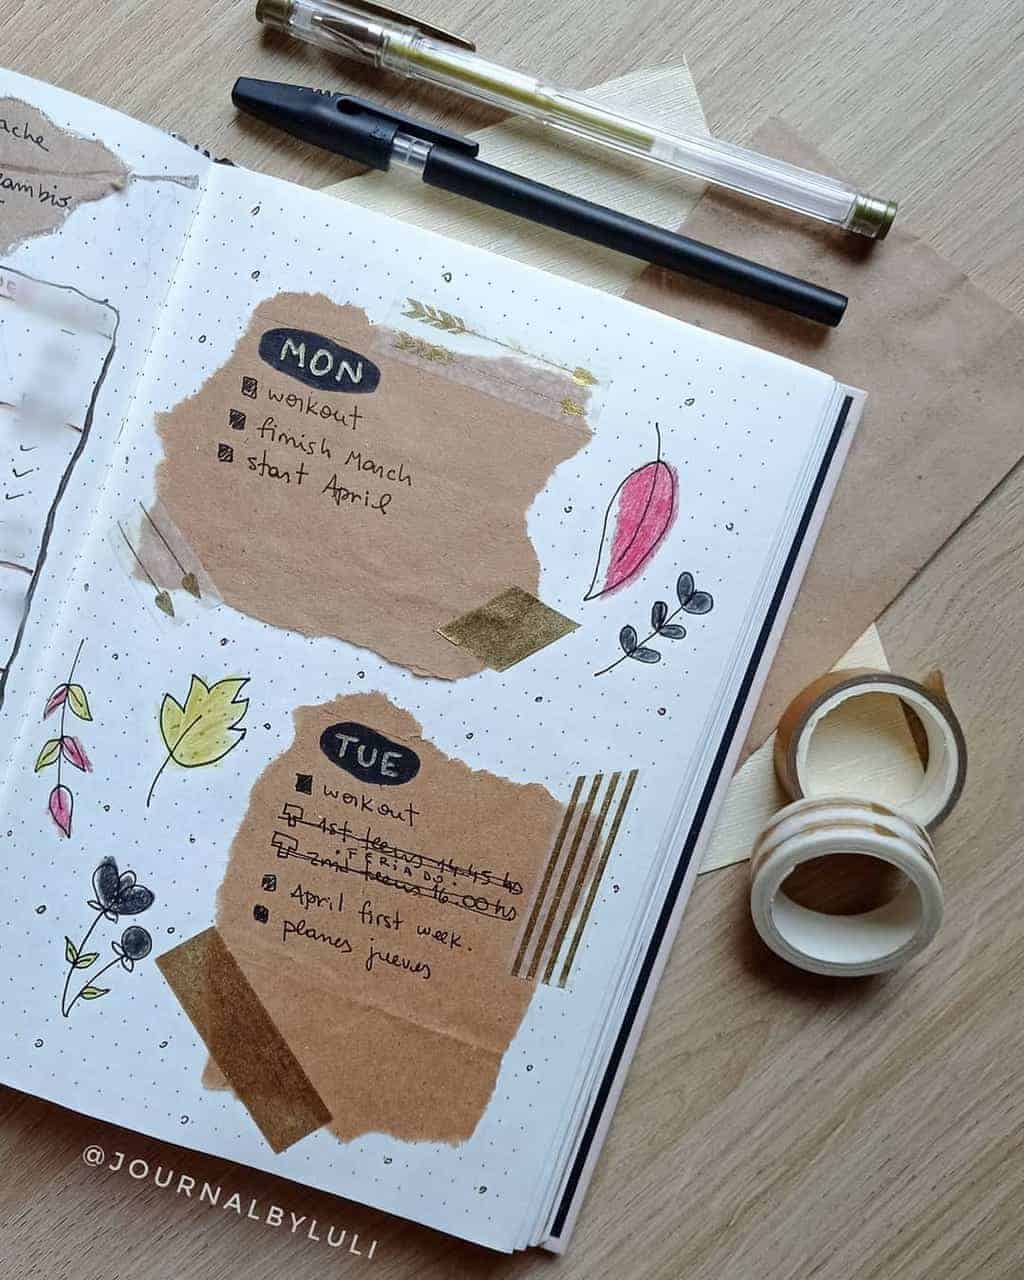 ache
cambio
MON
workout
finish March
start April
TUE
workout
1st leeus 14.45 hs
• FERIADO •
2nd leeus 16.00 hs
April first week.
planes jueves
@JOURNALBYLULI